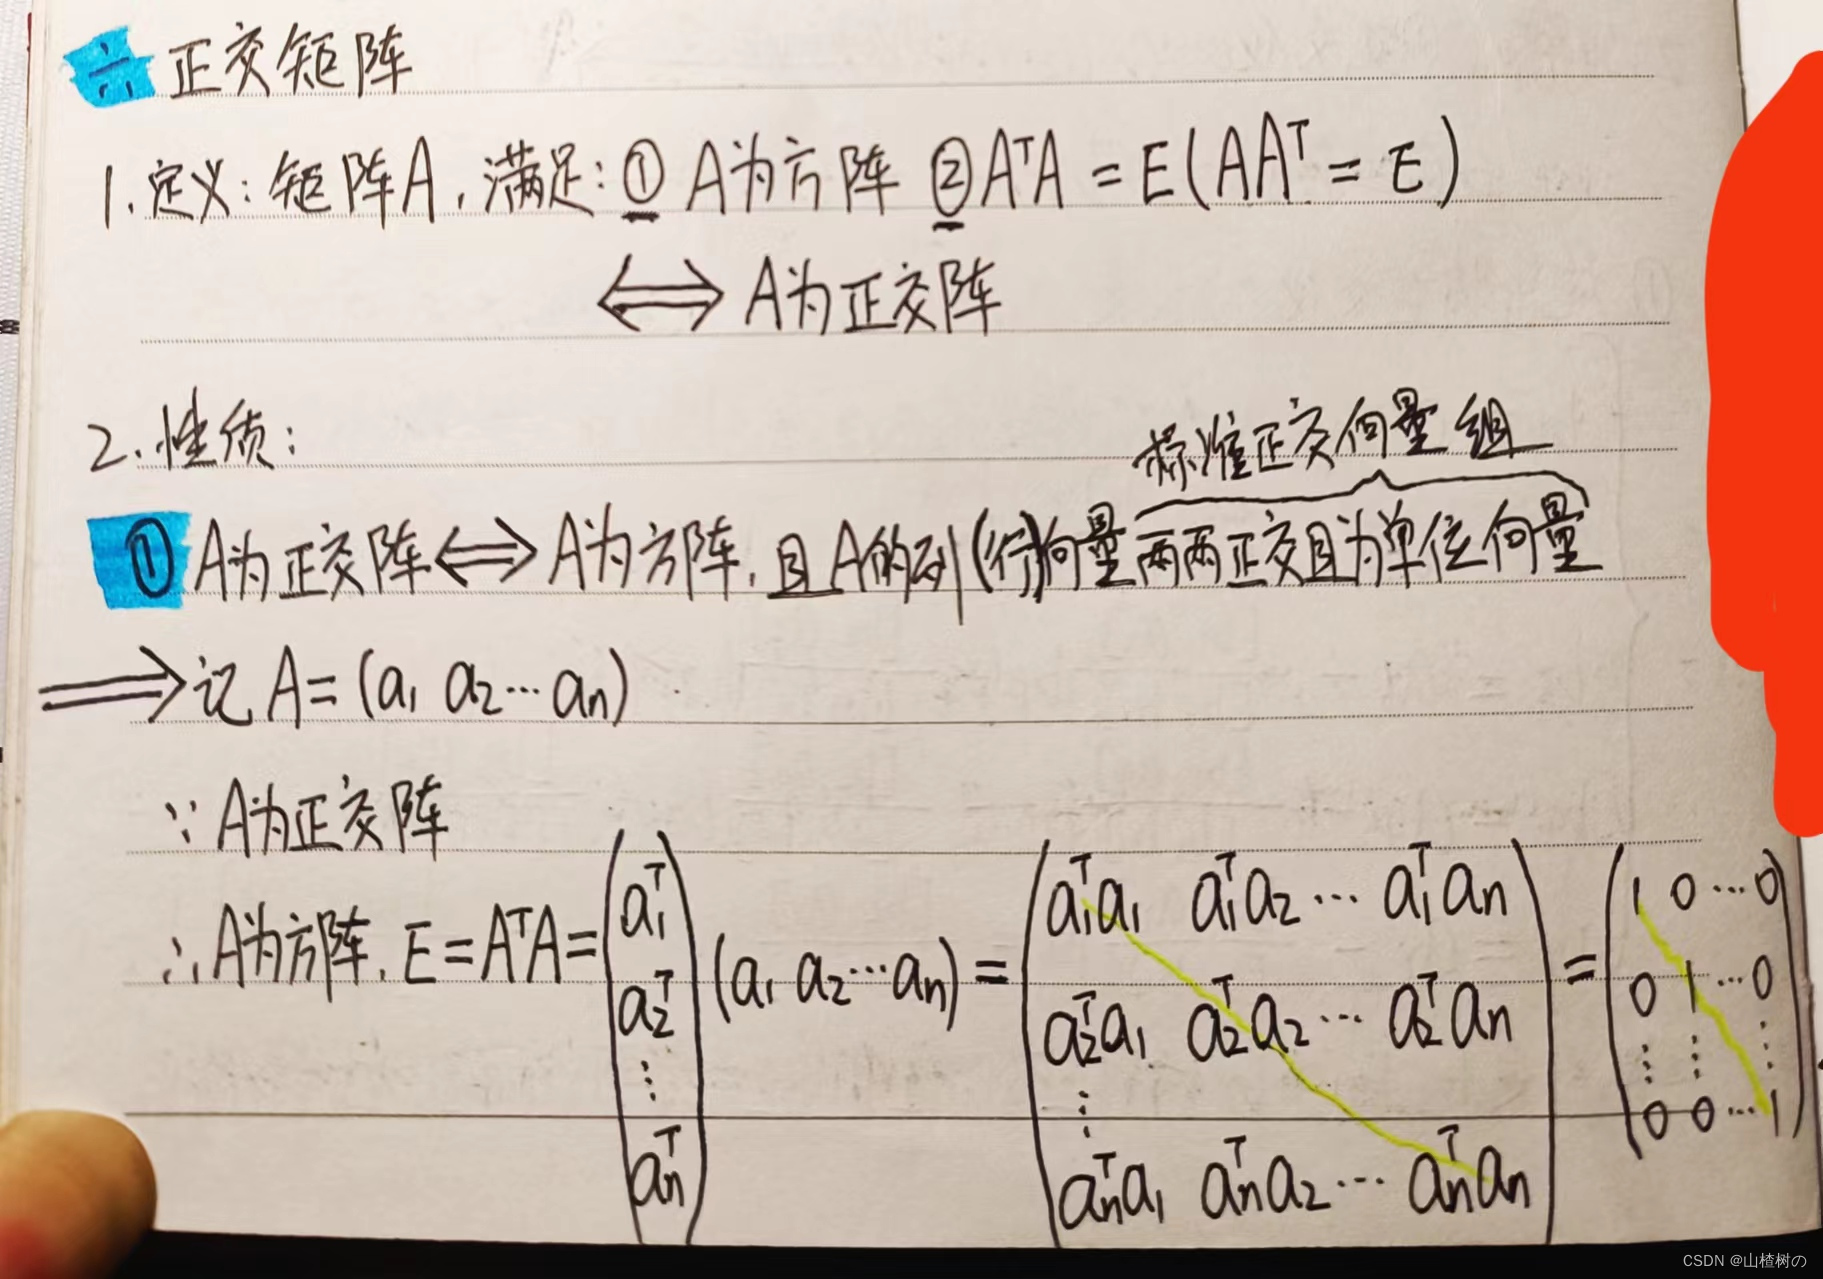 六 正交矩阵
1.定义: 矩阵A, 满足: ① A为方阵 ② AᵀA = E (AAᵀ = E)
⟺ A为正交阵
2.性质:
标准正交向量组
① A为正交阵 ⟺ A为方阵, 且A的列(行)向量两两正交且为单位向量
⟹ 记 A = (a₁ a₂ ⋯ aₙ)
∵ A为正交阵
∴ A为方阵, E = AᵀA = (a₁ᵀ a₂ᵀ ⋮ aₙᵀ) (a₁ a₂ ⋯ aₙ) = (a₁ᵀa₁ a₁ᵀa₂ ⋯ a₁ᵀaₙ a₂ᵀa₁ a₂ᵀa₂ ⋯ a₂ᵀaₙ ⋮ aₙᵀa₁ aₙᵀa₂ ⋯ aₙᵀaₙ) = (1 0 ⋯ 0 0 1 ⋯ 0 ⋮ ⋮ ⋮ 0 0 ⋯ 1)
CSDN @山楂树の